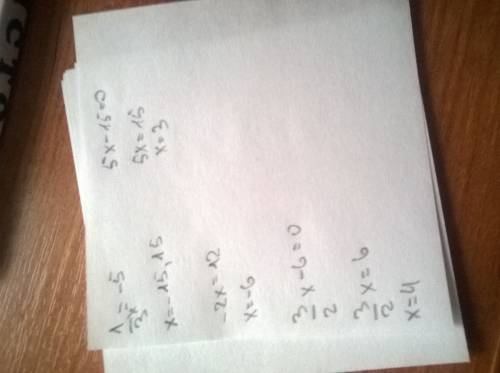 1/3 x = -5
x = -15,15
-2x = 12
x = -6
3/2 x - 6 = 0
3/2 x = 6
x = 4
5x - 15 = 0
5x = 15
x = 3